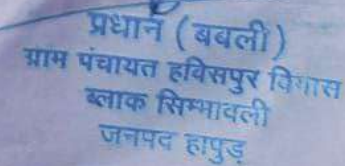 प्रधान (बबली)
ग्राम पंचायत हविसपुर विगास
ब्लाक सिम्भावली
जनपद हापुड़